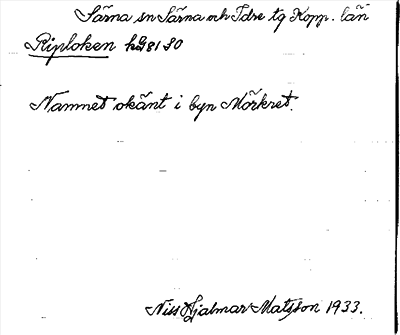 Särna sn Särna och Idre tg Kopp. län
Riploken 81 SO
Namnet okänt i byn Mörkret.
Niss Hjalmar Matsson 1933.